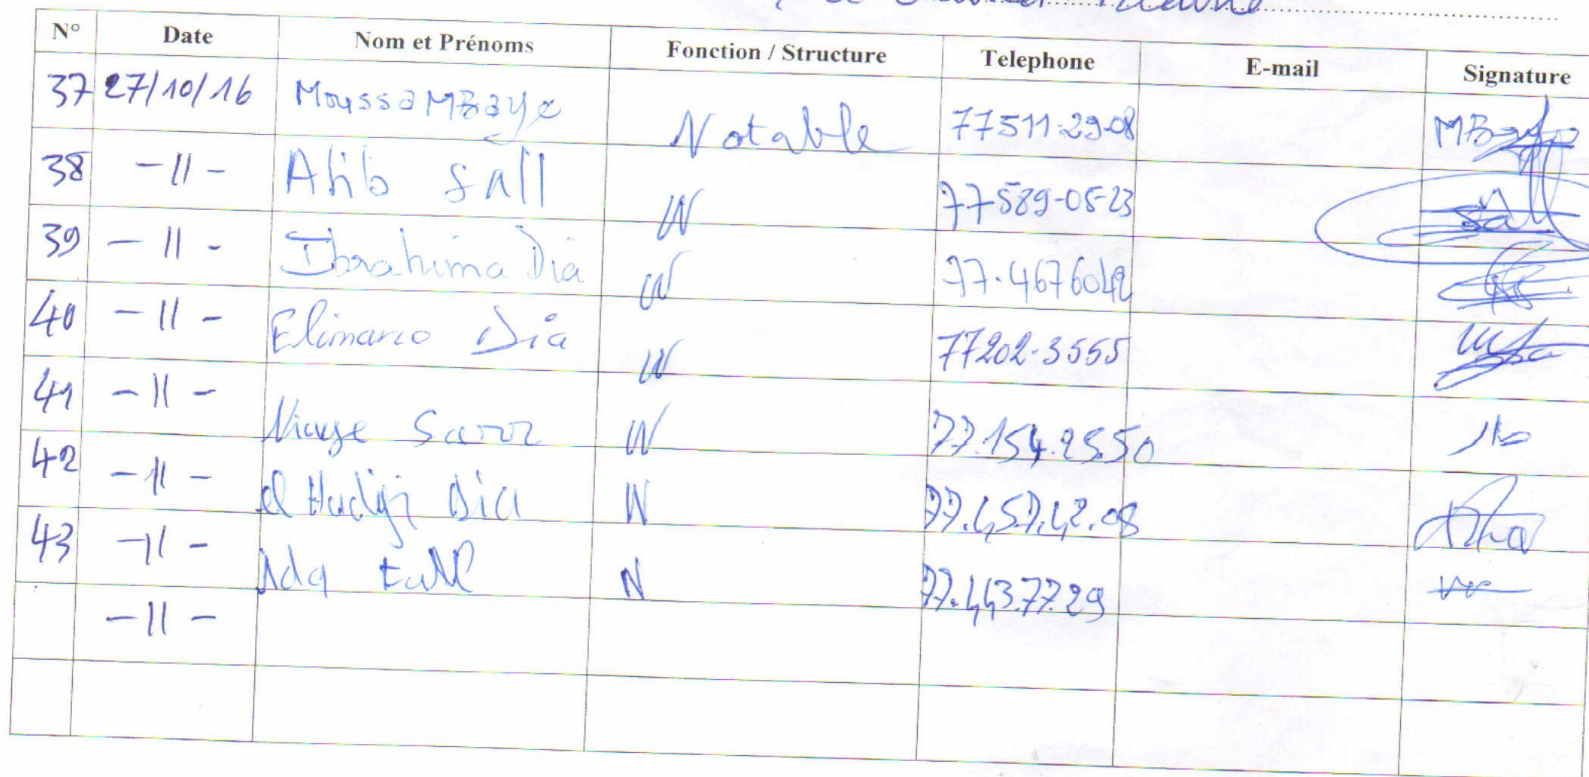 N° Date Nom et Prénoms Fonction / Structure Telephone E-mail Signature
37 27/10/16 Moussa MBaye Notable 77511-29-08
38 -11- Ahib Sall N 77-589-05-23 Sall
39 -11- Ibrahima Dia N 77.4676042
40 -11- Elimane Dia N 77202-3555
41 -11- Niaye Sarr N 77.154.25.50
42 -11- el Hadji Dia N 77.457.42.08
43 -11- Ada tall N 77.443.77.29
-11-